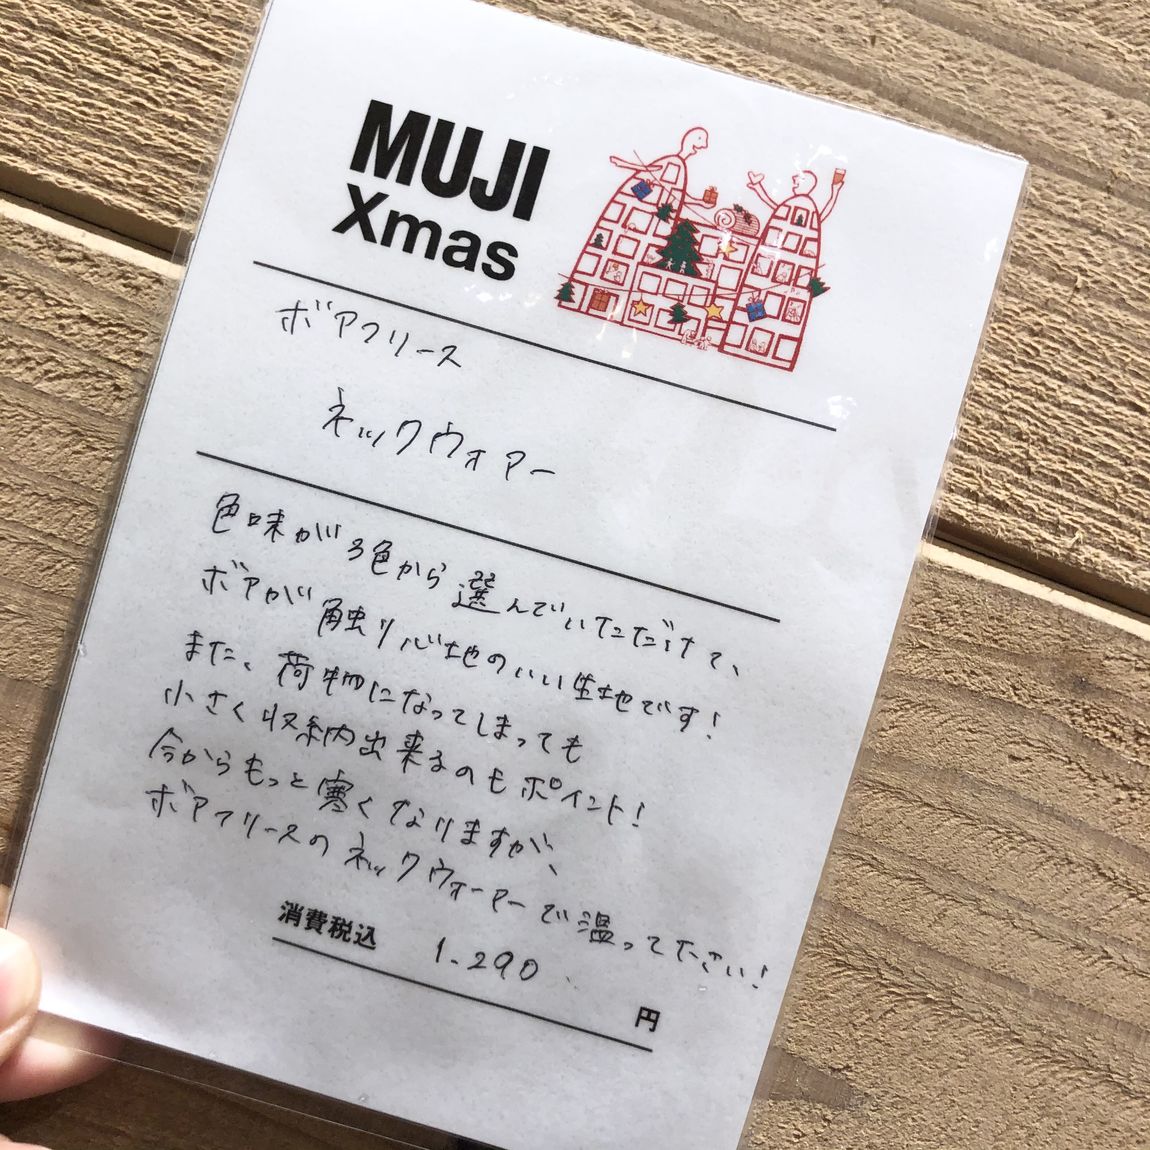 MUJI
Xmas
ボアフリース
ネックウォアー
色味が3色から選んでいただけて、
ボアが触り心地のいい生地です！
また、荷物になってしまっても
小さく収納出来るのもポイント！
今からもっと寒くなりますが、
ボアフリースのネックウォーアーで温ってたさい！
消費税込 1.290
円